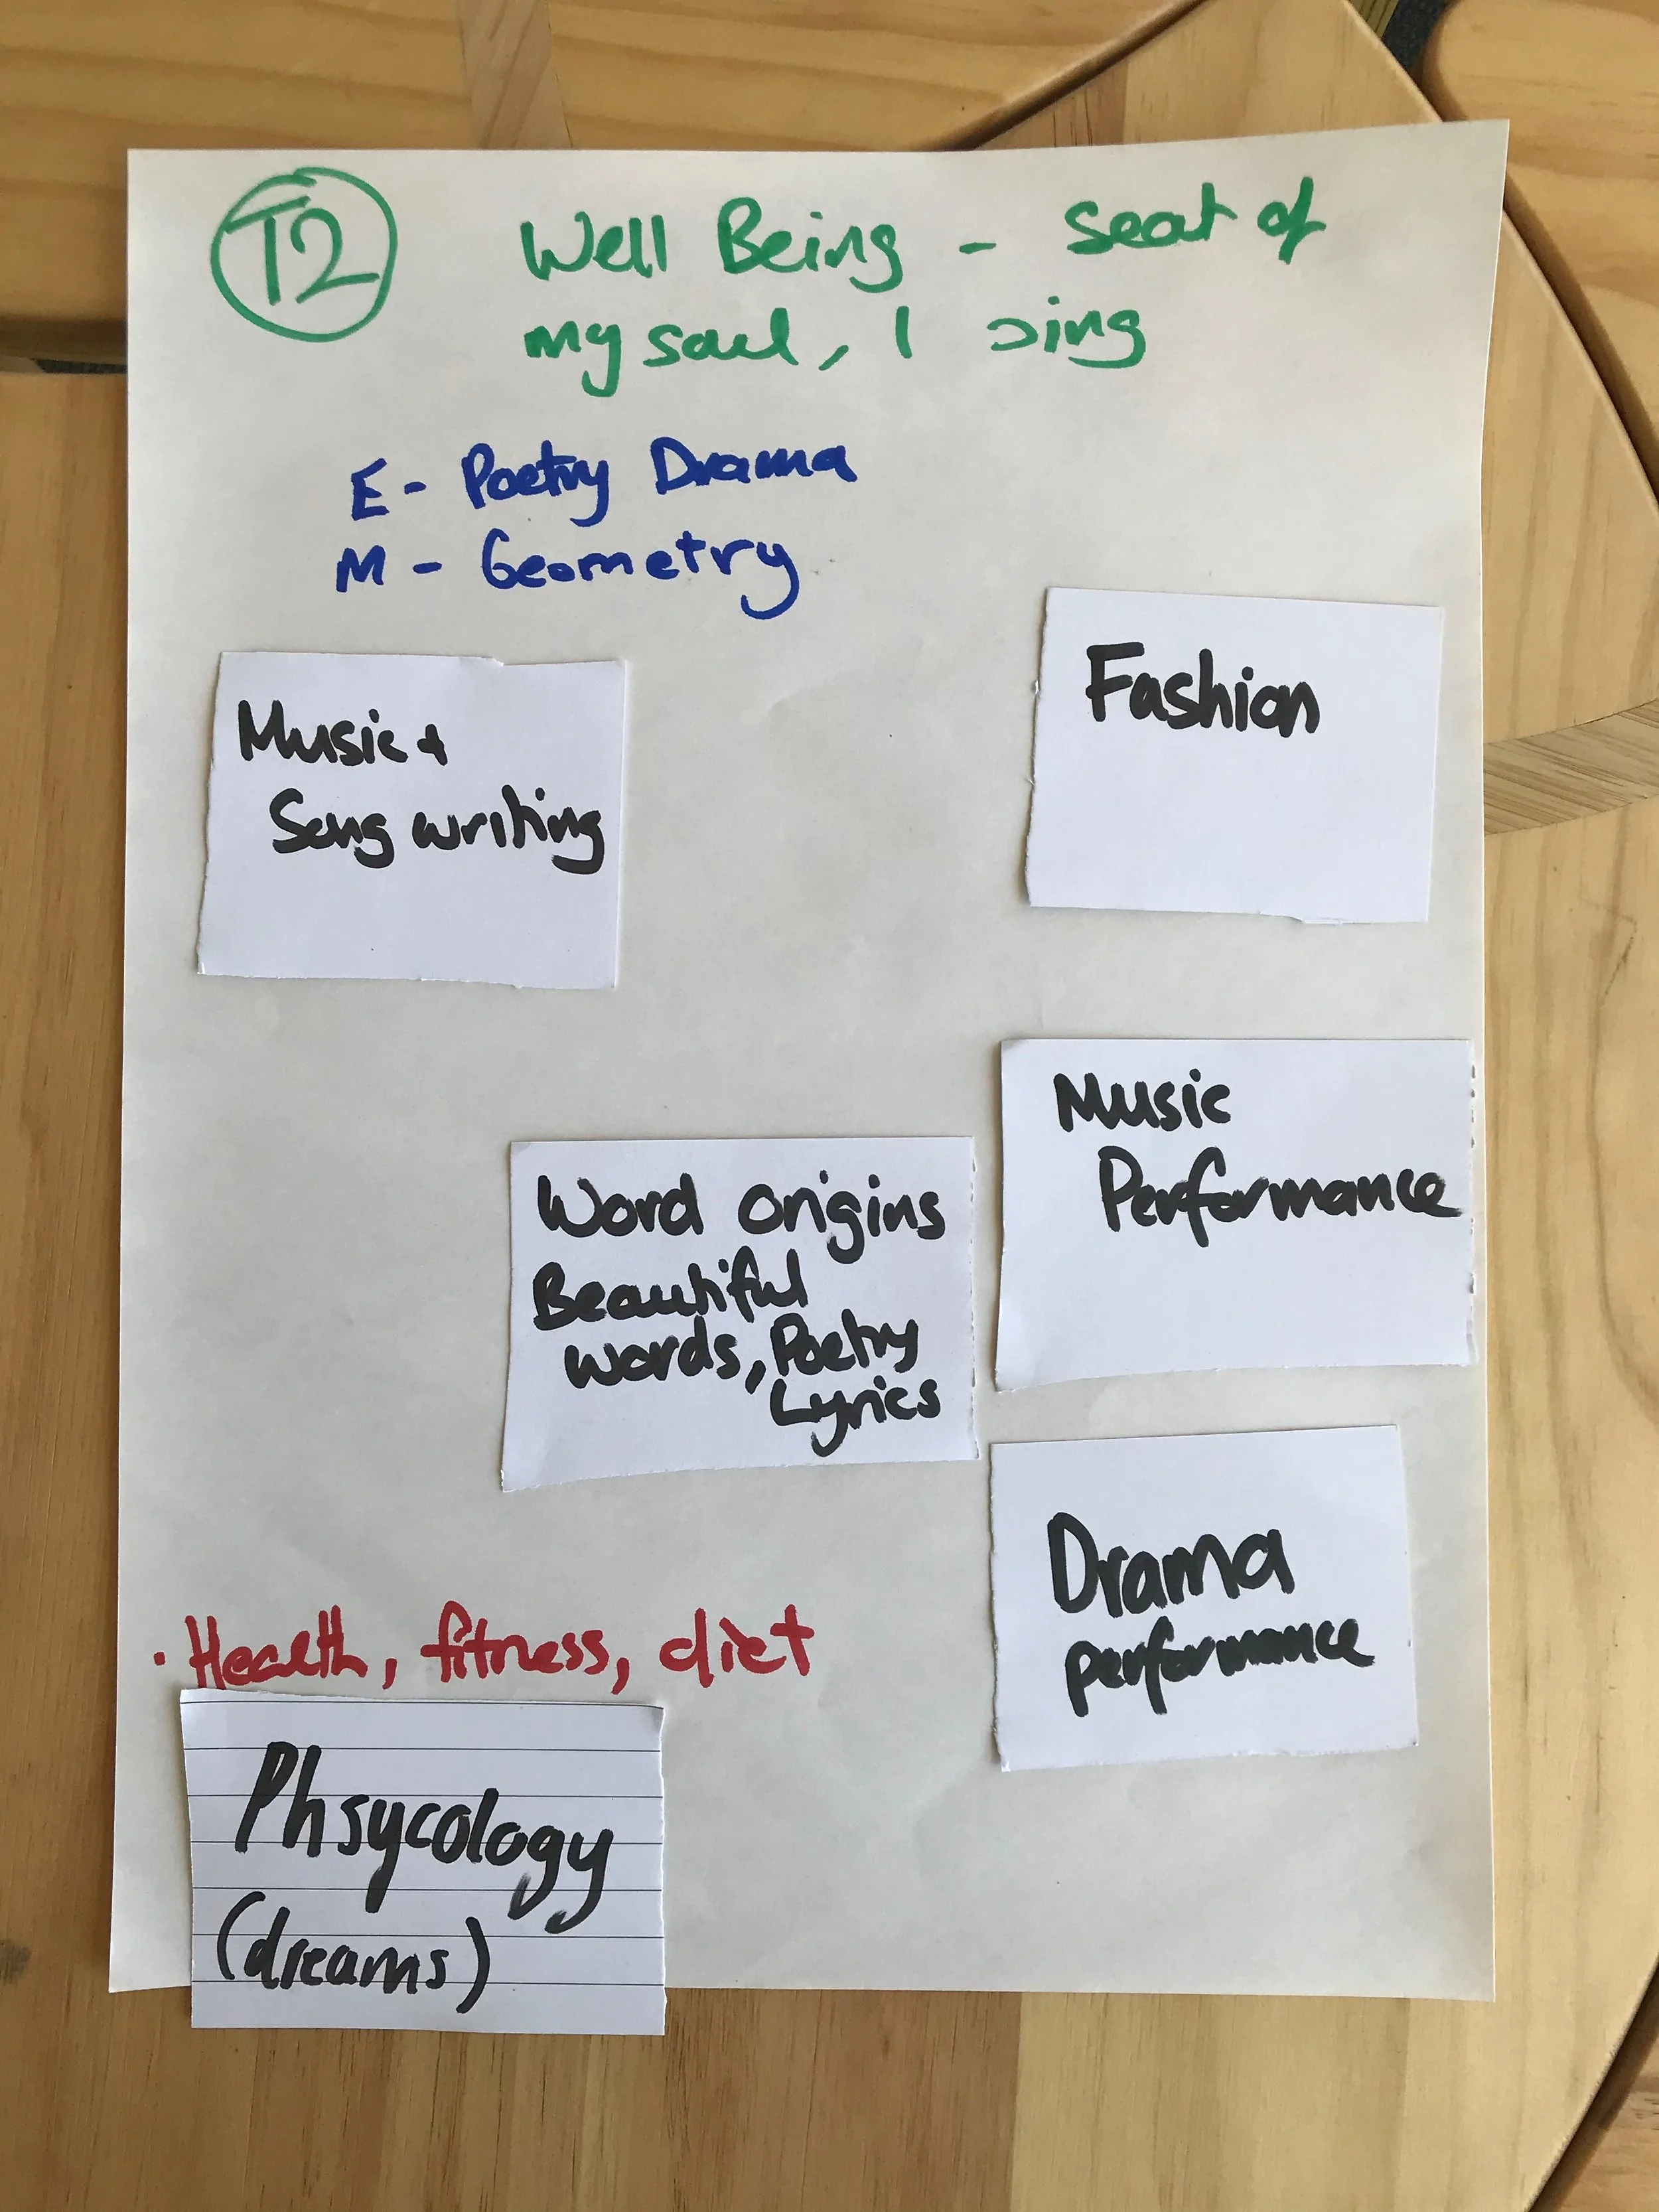 T2
Well Being - seat of
my soul, I sing
E- Poetry Drama
M - Geometry
Music +
Song writing
Fashion
Music
Performance
Word origins
Beautiful
words, Poetry
Lyrics
Drama
performance
· Health, fitness, diet
Phsycology
(dreams)